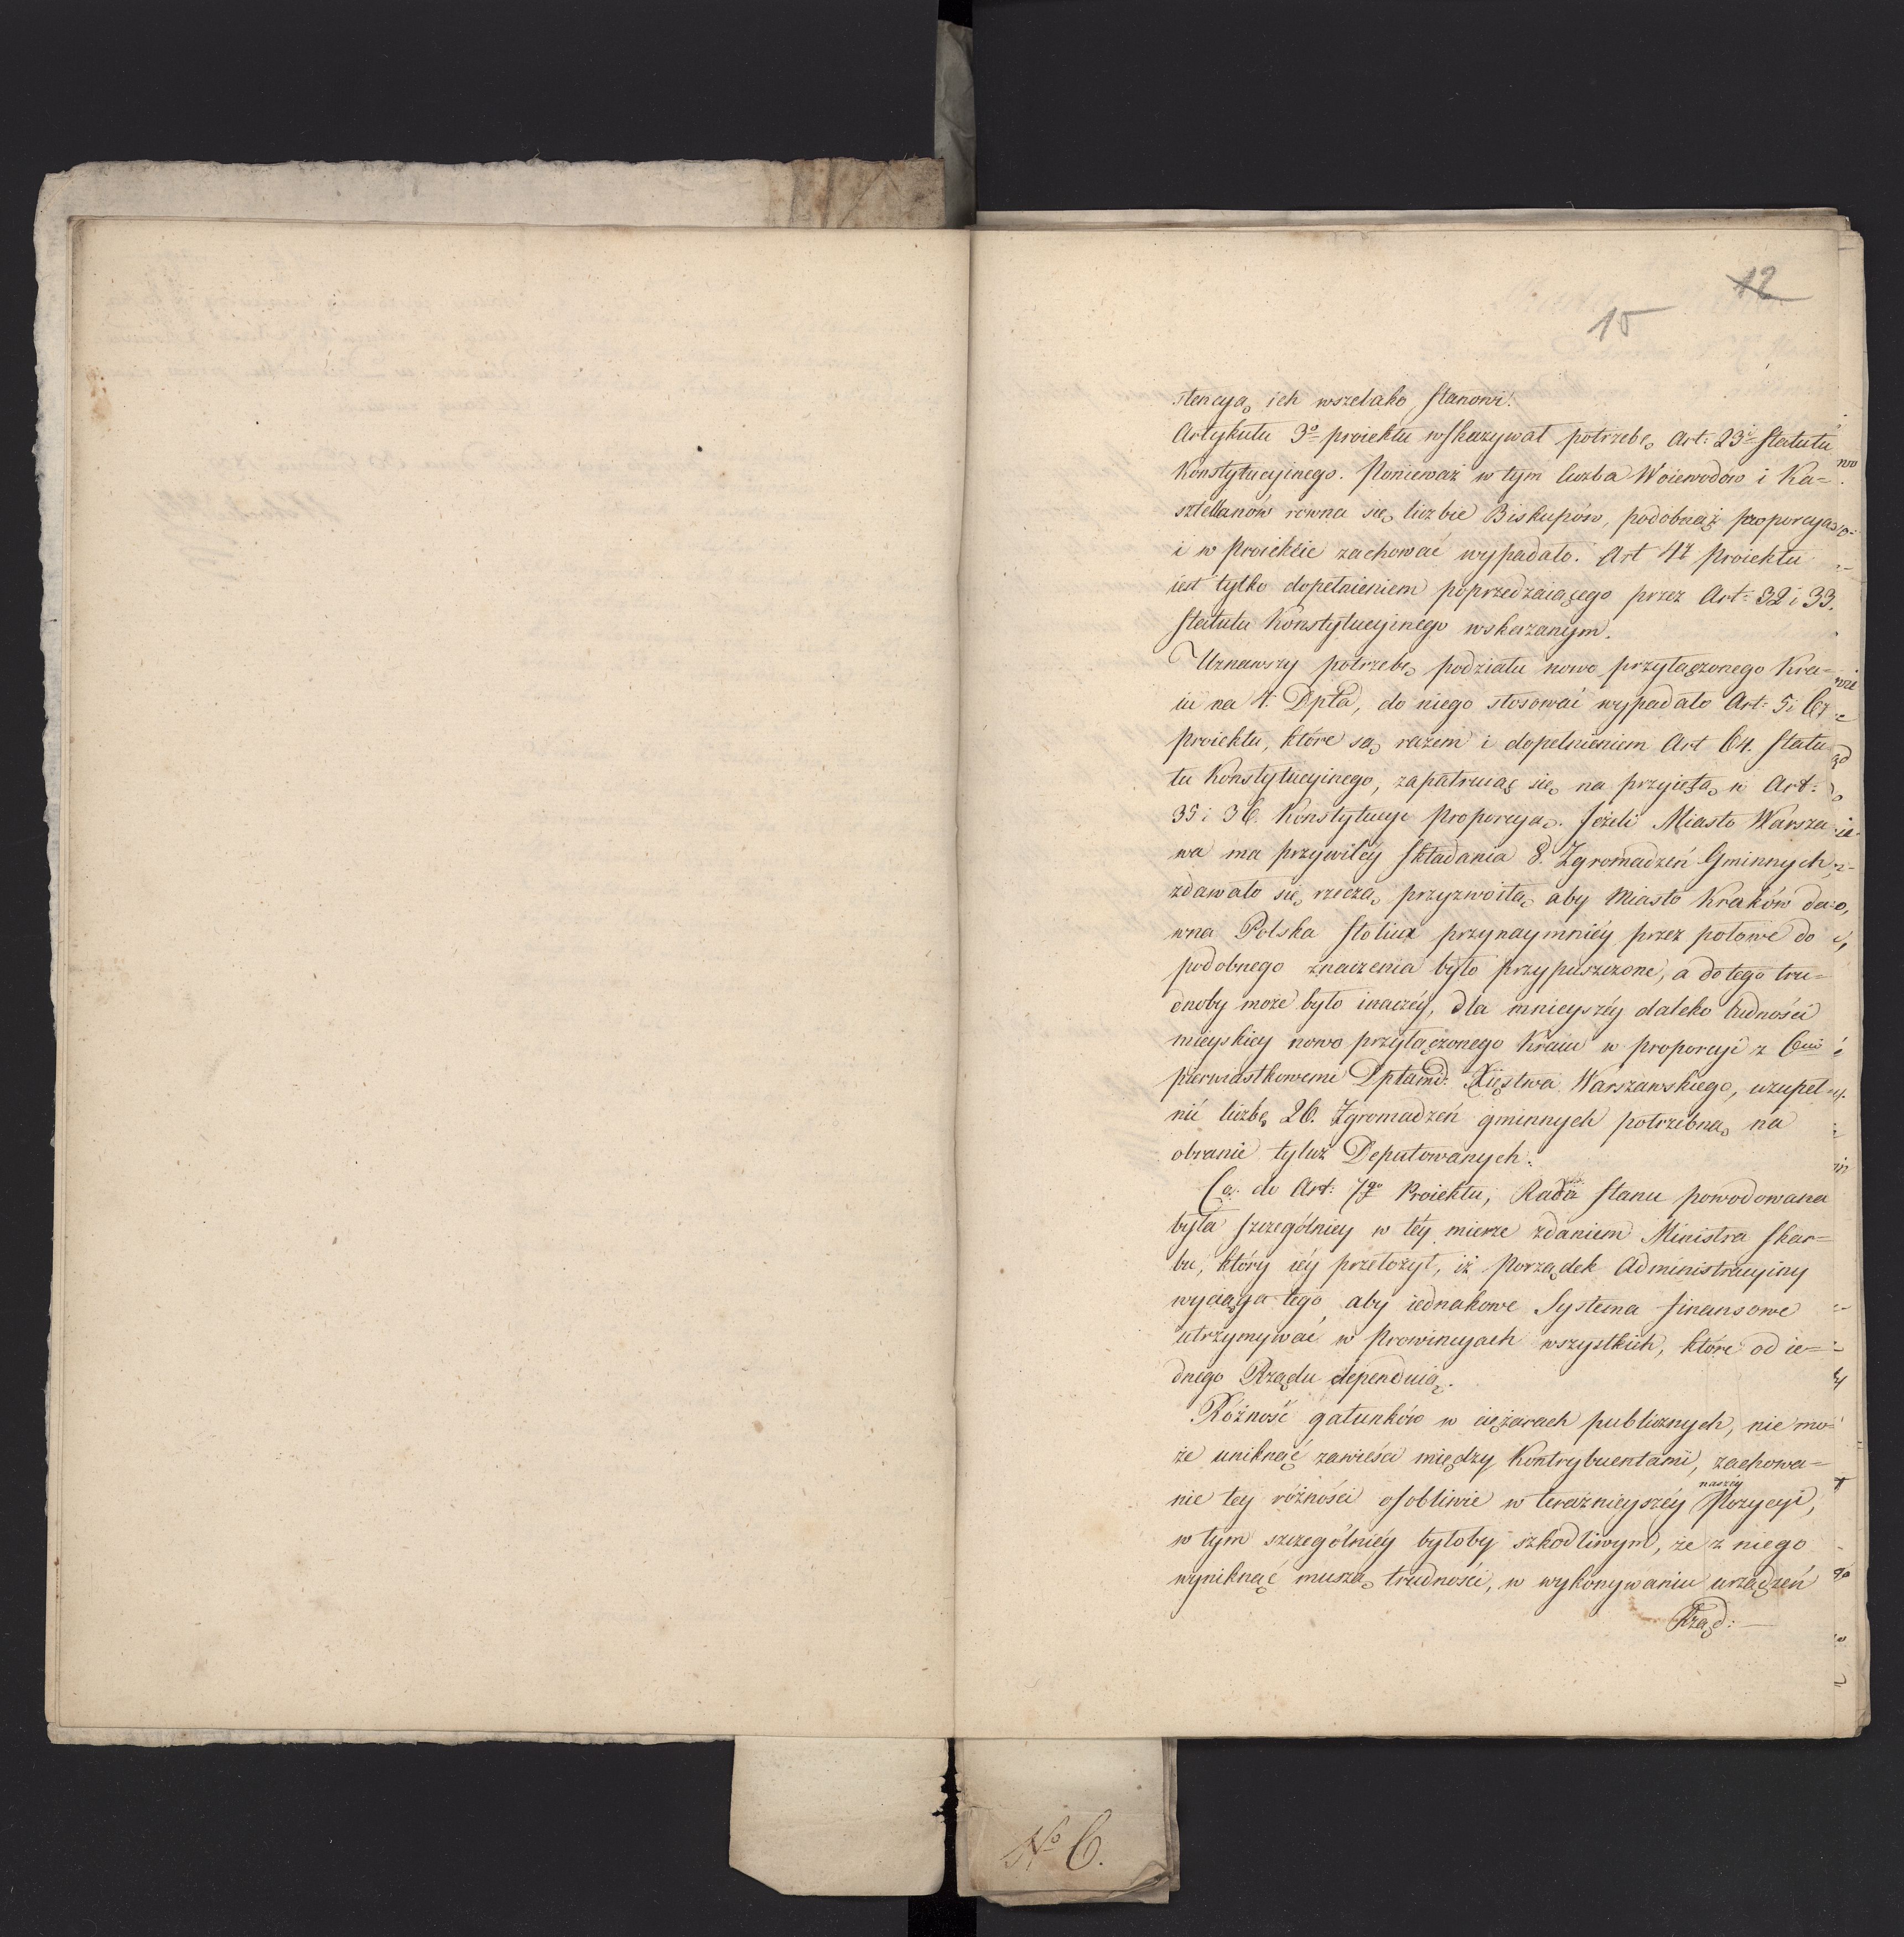 12
15
stencyą ich wszelako stanowi.
Artykułu 3º proiektu wskazywał potrzebę Art: 23i Statutu
Konstytucyinego. Ponieważ w tym liczba Woiewodów i Ka=
sztellanów równa się liczbie Biskupów, podobnąż proporcyą
i w Proiekcie zachować wypadało. Art 4ty Proiektu
iest tylko dopełnieniem poprzedzaiącego przez Art: 32 i 33.
Statutu Konstytucyinego wskazanym.
Uznawszy potrzebę podziału nowo przyłączonego Kra=
iu na 4. Dpta, do niego stosować wypadało Art: 5 i 6ty
proiektu, które są razem i dopełnieniem Art 64. Statu
tu Konstytucyinego, zapatruiąc się na przyiętą w Art:
35 i 36. Konstytucyi Proporcyą. Jeżeli Miasto Warsza
wa ma przywiléy składania 8. Zgromadzeń Gminnych,
zdawało się rzeczą przyzwoitą aby Miasto Kraków da=
wna Polska Stolica przynaymniéy przez połowę do
podobnego znaczenia było przypuszczone, a do tego tru=
dnoby może było inaczéy, dla mnieyszéy daleko ludności
mieyskiey nowo przyłączonego Kraiu w proporcyi z 6cią
pierwiastkowemi Dptami Xięstwa Warszawskiego, uzupeł
nić liczbę 26. Zgromadzeń gminnych potrzebną na
obranie tyluż Deputowanych.
Co do Art: 7go Proiektu, Rada Stanu powodowana
była szczególniey w téy mierze zdaniem Ministra Skar=
bu, który iéy przełożył, iż Porządek Administracyiny
wyciąga tego, aby iednakowe Systema finansowe
utrzymywać w Prowincyach wszystkich, które od ie=
dnego Rządu dependuią.
Różność gatunków w ciężarach publicznych, nie mo=
że uniknąć zawiści między Kontrybuentami, zachowa=
nie tey różności osobliwie w teraźnieyszéy naszéy Pozycyi,
w tym szczególniéy byłoby szkodliwym, że z niego
wyniknąć muszą trudności, w wykonywaniu urządzeń
Rząd:
Nº 6.